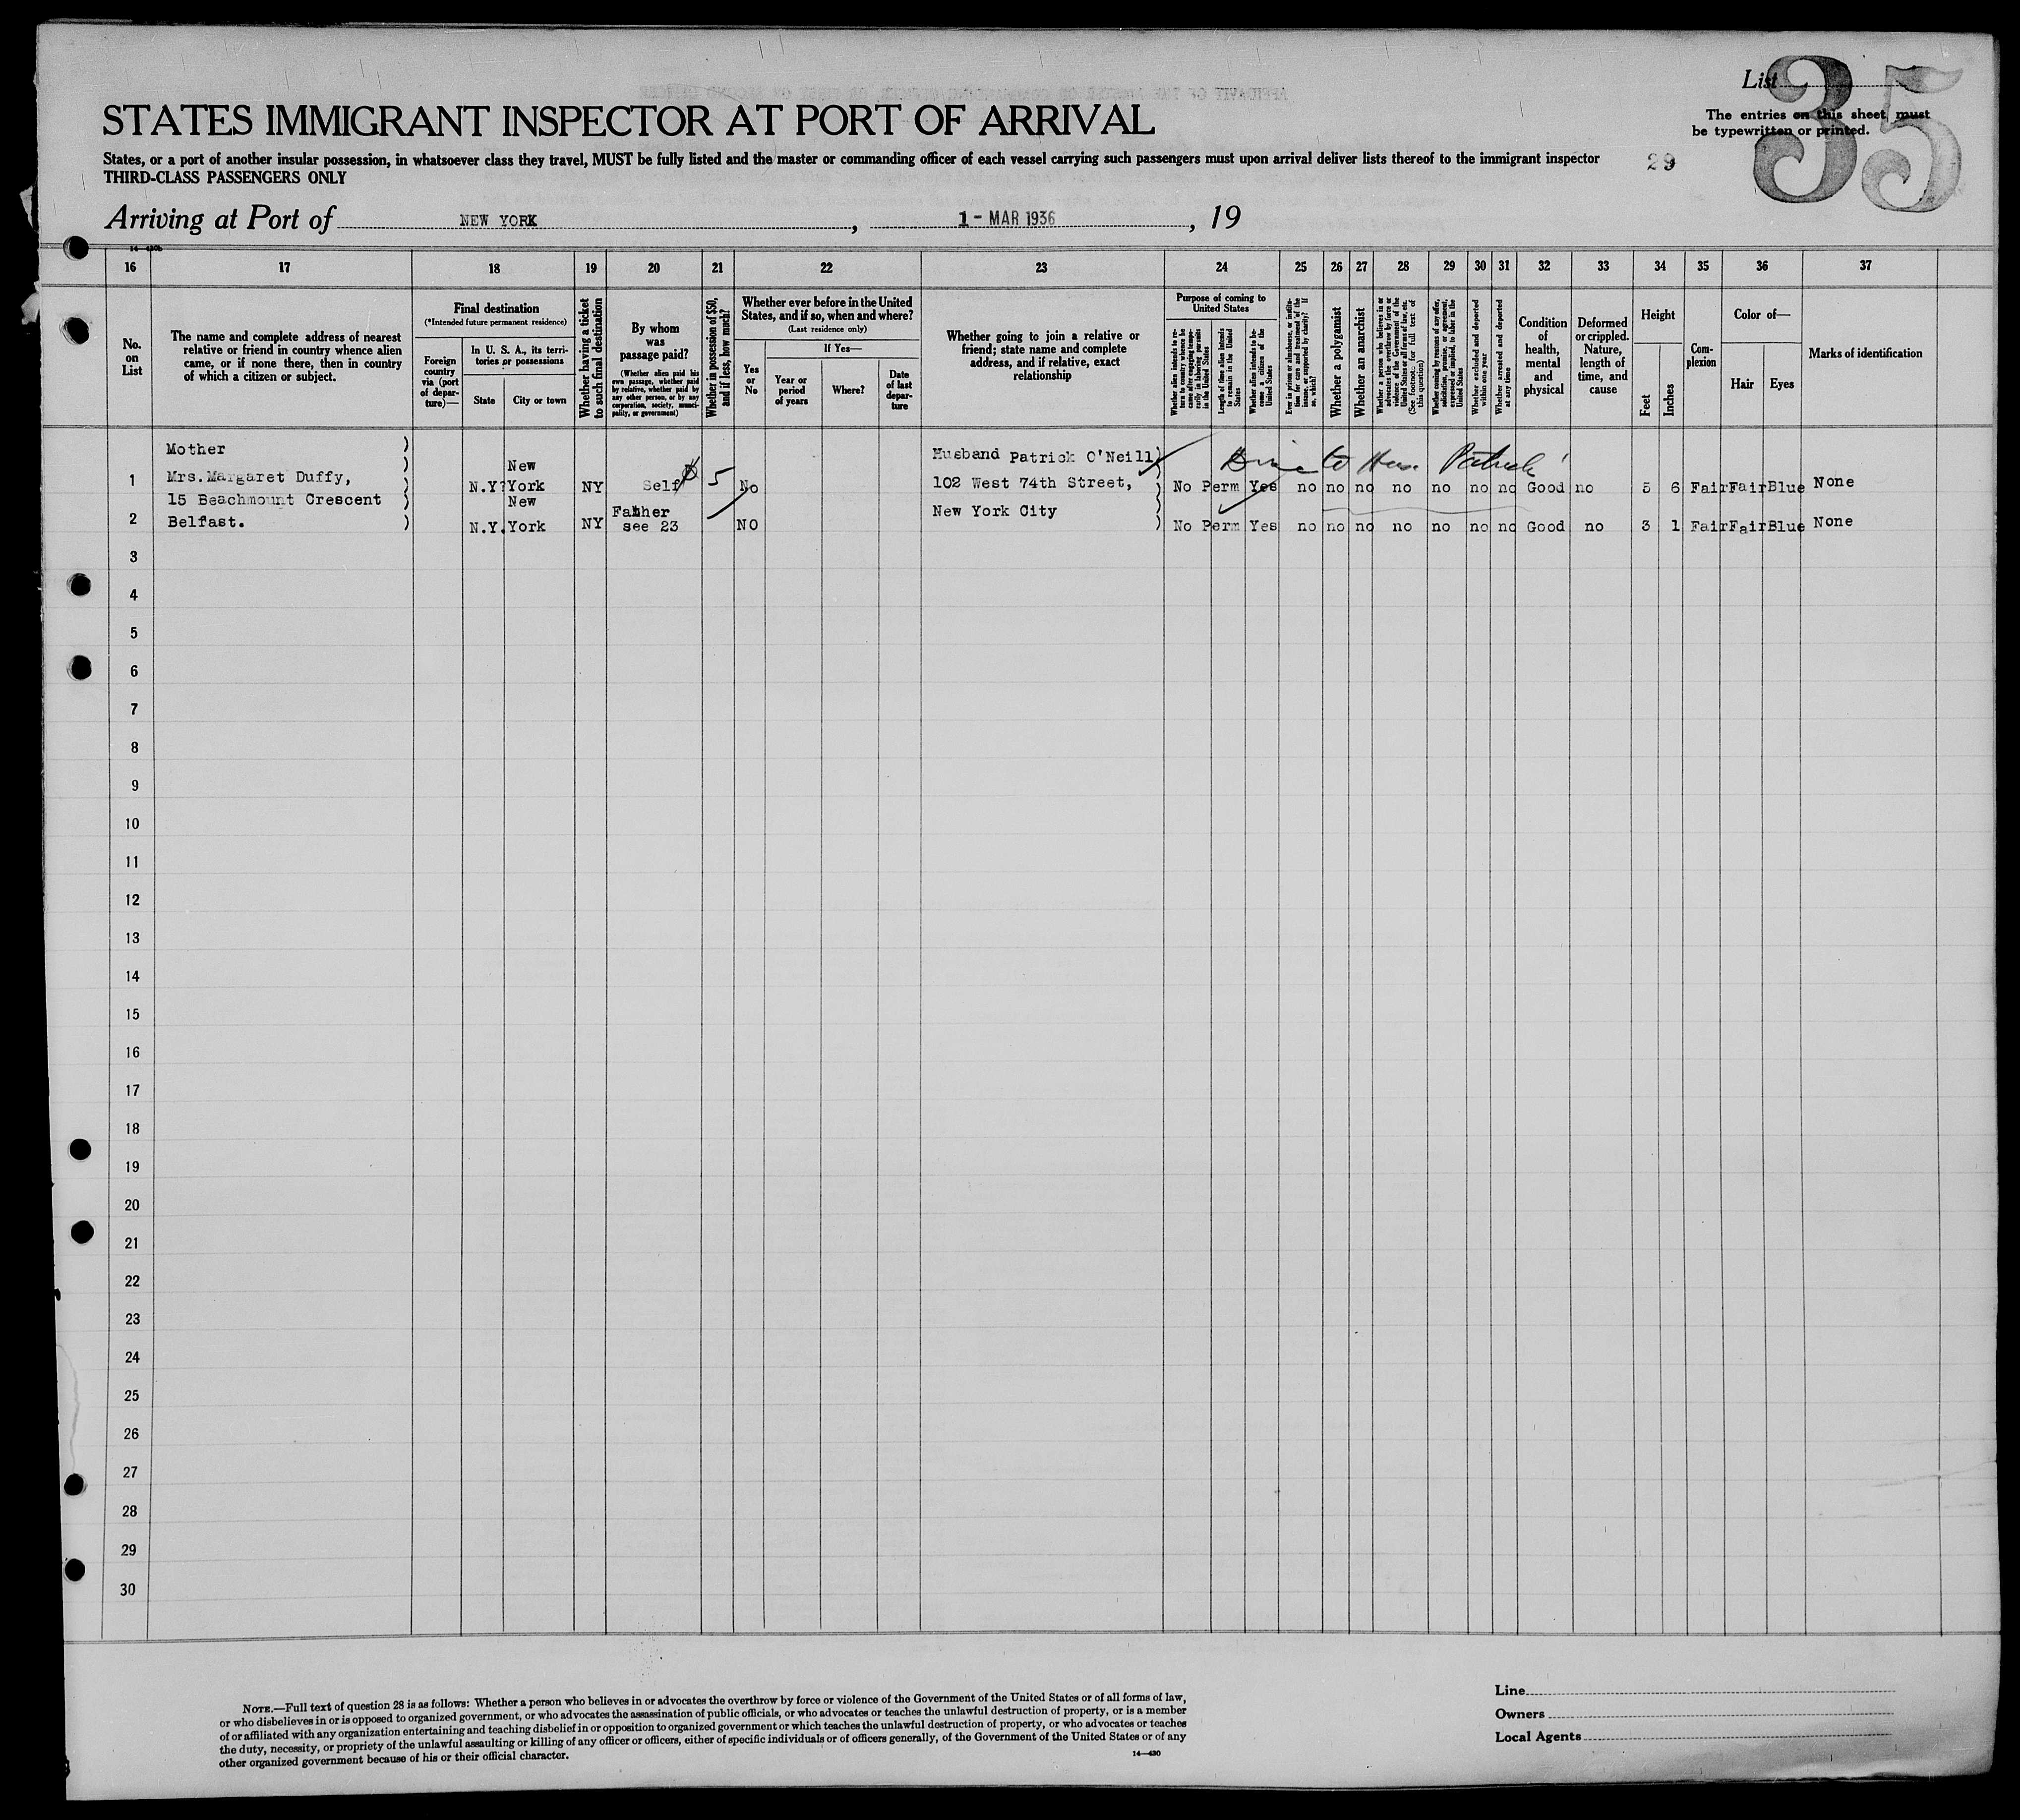 List
35
The entries on this sheet must
be typewritten or printed.
STATES IMMIGRANT INSPECTOR AT PORT OF ARRIVAL
States, or a port of another insular possession, in whatsoever class they travel, MUST be fully listed and the master or commanding officer of each vessel carrying such passengers must upon arrival deliver lists thereof to the immigrant inspector
29
THIRD-CLASS PASSENGERS ONLY
Arriving at Port of NEW YORK, 1 - MAR 1936, 19
16 17 18 19 20 21 22 23 24 25 26 27 28 29 30 31 32 33 34 35 36 37
No.
on
List
The name and complete address of nearest
relative or friend in country whence alien
came, or if none there, then in country
of which a citizen or subject.
Final destination
(*Intended future permanent residence)
Foreign
country
via (port
of depar-
ture)—
In U. S. A., its terri-
tories or possessions
State
City or town
Whether having a ticket
to such final destination
By whom
was
passage paid?
(Whether alien paid his
own passage, whether paid
by relative, whether paid by
any other person, or by any
corporation, society, munici-
pality, or government)
Whether in possession of $50,
and if less, how much?
Whether ever before in the United
States, and if so, when and where?
(Last residence only)
Yes
or
No
If Yes—
Year or
period
of years
Where?
Date
of last
depar-
ture
Whether going to join a relative or
friend; state name and complete
address, and if relative, exact
relationship
Purpose of coming to
United States
Length of time alien intends
to remain in the United
States
Whether alien intends to be-
come a citizen of the
United States
Whether a polygamist
Whether an anarchist
Whether excluded and deported
within one year
Whether arrested and deported
at any time
Condition
of
health,
mental
and
physical
Deformed
or crippled.
Nature,
length of
time, and
cause
Height
Feet
Inches
Com-
plexion
Color of—
Hair
Eyes
Marks of identification
Mother
Mrs. Margaret Duffy,
15 Beachmount Crescent
Belfast.
1 N.Y. New York NY Self $5 No
Husband Patrick O'Neill
102 West 74th Street,
New York City
to Hus. Patrick
No Perm Yes no no no no no no no Good no 5 6 Fair Fair Blue None
2 N.Y. New York NY Father see 23 NO
No Perm Yes no no no no no no no Good no 3 1 Fair Fair Blue None
3
4
5
6
7
8
9
10
11
12
13
14
15
16
17
18
19
20
21
22
23
24
25
26
27
28
29
30
NOTE.—Full text of question 28 is as follows: Whether a person who believes in or advocates the overthrow by force or violence of the Government of the United States or of all forms of law,
or who disbelieves in or is opposed to organized government, or who advocates the assassination of public officials, or who advocates or teaches the unlawful destruction of property, or is a member
of or affiliated with any organization entertaining and teaching disbelief in or opposition to organized government or which teaches the unlawful destruction of property, or who advocates or teaches
the duty, necessity, or propriety of the unlawful assaulting or killing of any officer or officers, either of specific individuals or of officers generally, of the Government of the United States or of any
other organized government because of his or their official character.
14—430
Line
Owners
Local Agents